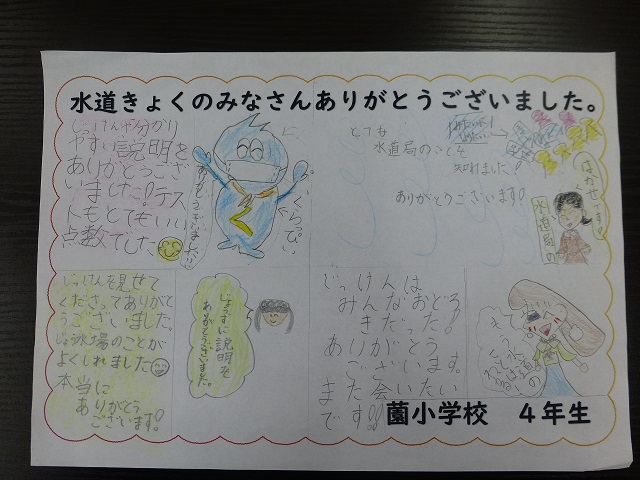 水道きょくのみなさんありがとうございました。
じっけんや分かり
やすい説明を
ありがとうござい
ました!テス
トもとてもいい
点数でした
ありがとうございました!!
くらっぴぃ
とても
水道局のことも
知れました!
ありがとうございます!
はかせです!
水道局の
じっけんを見せて
くださってありがと
うございました。
じょう水場のことが
よくしれました
本当に
ありがとう
ございます!
じょうずに説明を
ありがとうございました。
じっけんは
みんなおどろ
きだった!
ありがとう
ございます。
また会いたい
です!!
薗小学校 4年生